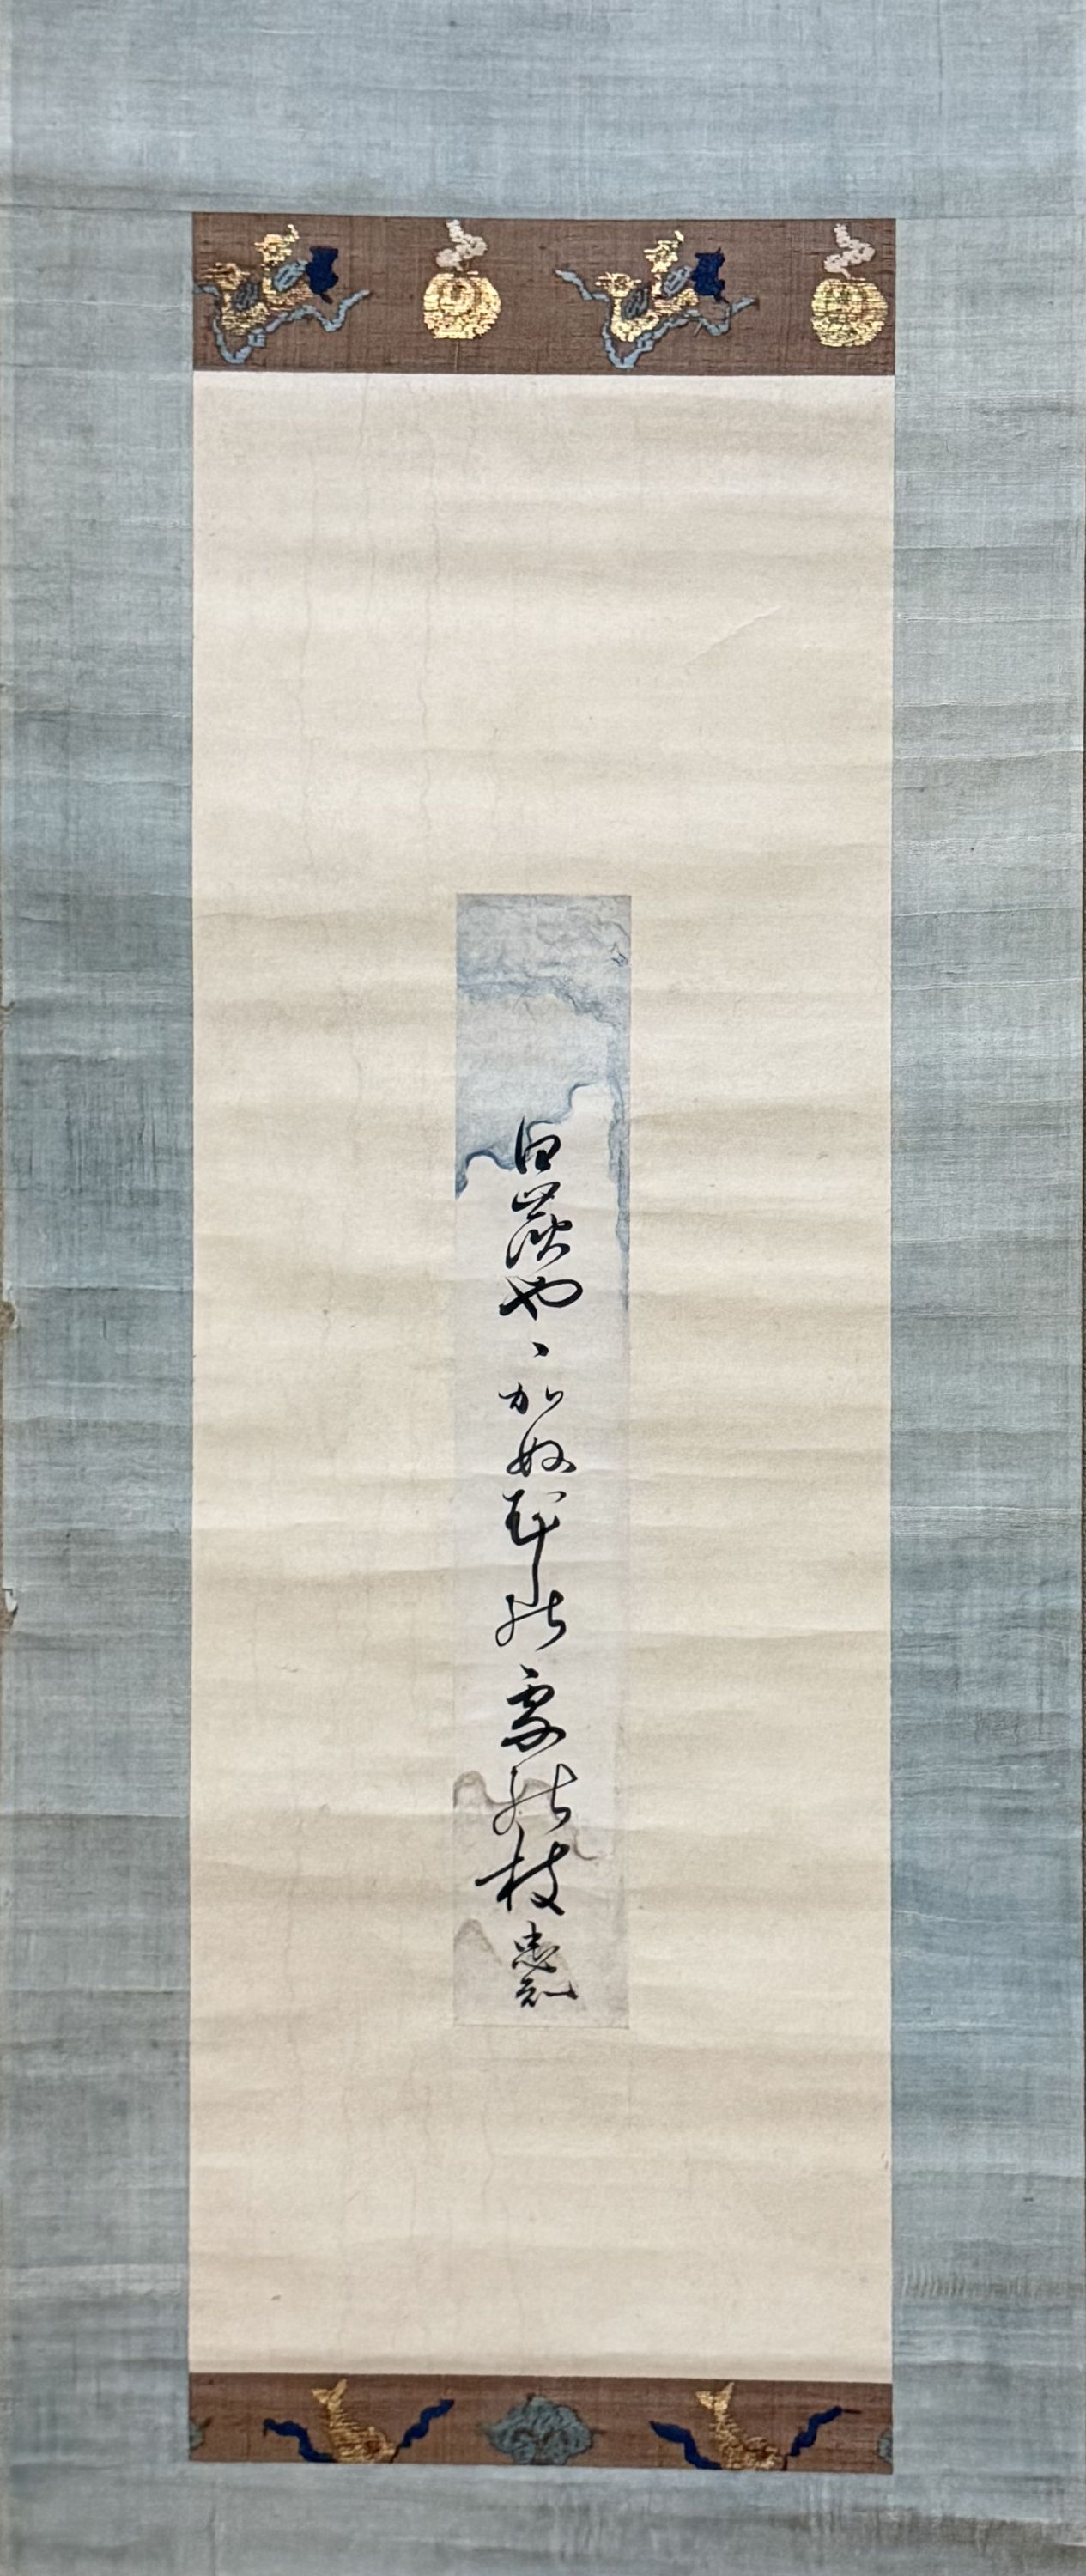 白炭やゝかぬむかしの雪の枝 忠知